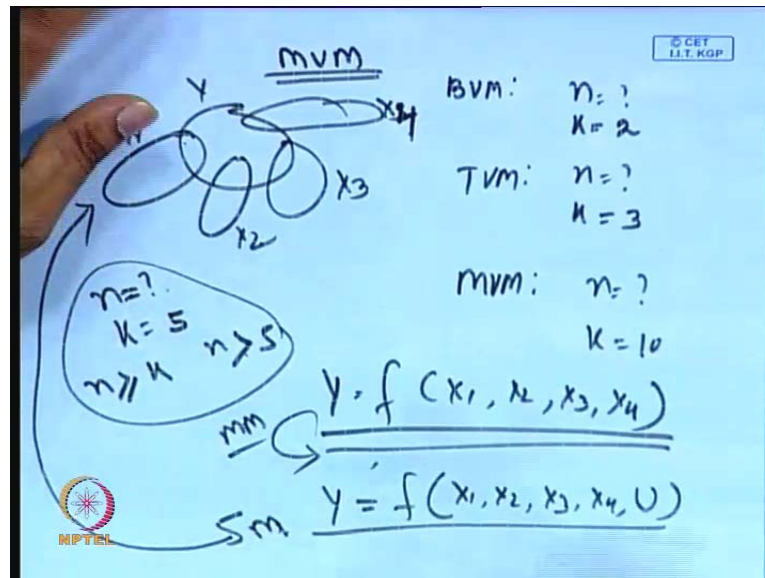 MVM
© CET
I.I.T. KGP
Y
X4
X3
X2
BVM: n = ?
K = 2
TVM: n = ?
K = 3
MVM: n = ?
K = 10
n = ?
K = 5
n > 5
n ≥ K
Y = f (X1, X2, X3, X4)
MM
Y = f (X1, X2, X3, X4, U)
SM
NPTEL